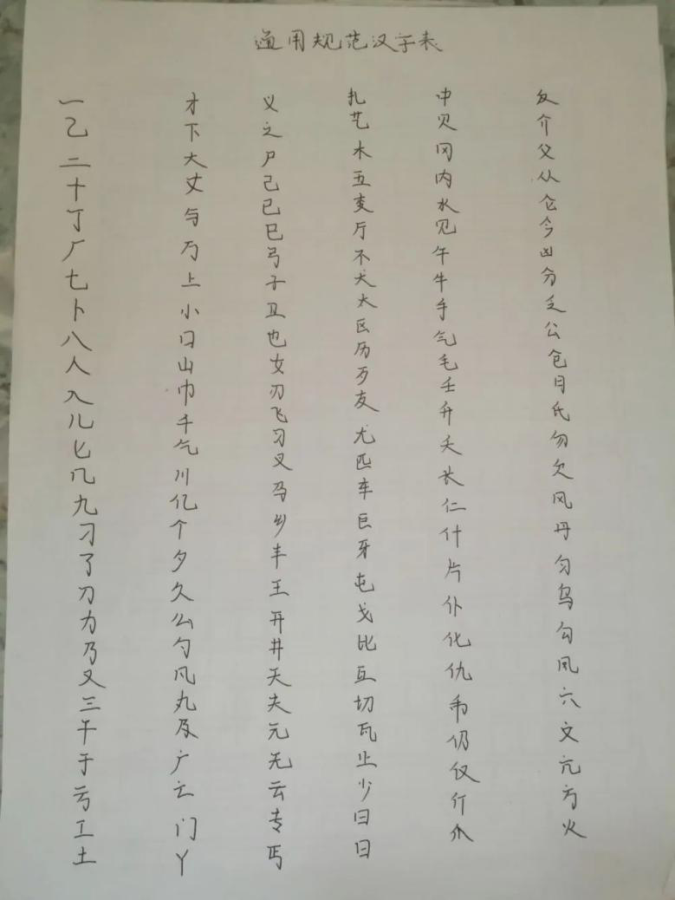 通用规范汉字表
一乙二十丁厂七卜八人入儿匕几九刁了刀力乃又三干于亏工土
才下大丈与万上小口山巾千乞川亿个夕久么勺凡丸及广亡门丫
义之尸己已巳弓子卫也女刃飞习叉马乡丰王开井天夫元无云专丐
扎艺木五支厅不犬太区历歹友尤匹车巨牙屯戈比互切瓦止少曰日
中贝冈内水见午牛手气毛壬升夭长仁什片仆化仇币仍仅斤爪
反介父从仑今凶分乏公仓月氏勿欠风丹匀乌勾凤六文亢方火